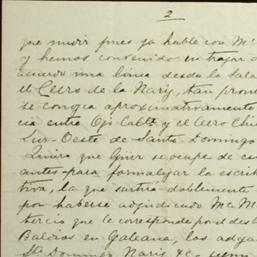 2
que medir pues ya hablé con Mc
y hemos convenido en trazar d
acuerdo una línea desde la Sala
el Cerro de la Nariz, tan pront
se conozca aproximativamente
cia entre Ojo Calte y el Cerro Chi
Sur-Oeste de Santo Domingo
Quiero que Güier se ocupe de es
antes para formalizar la escrit
tiva, la que surtirá doblemente
por haberse adjudicado Mc M
tercio que le corresponde por el desl
Baldíos en Galeana, los adya
Sto Domingo, Nariz &c